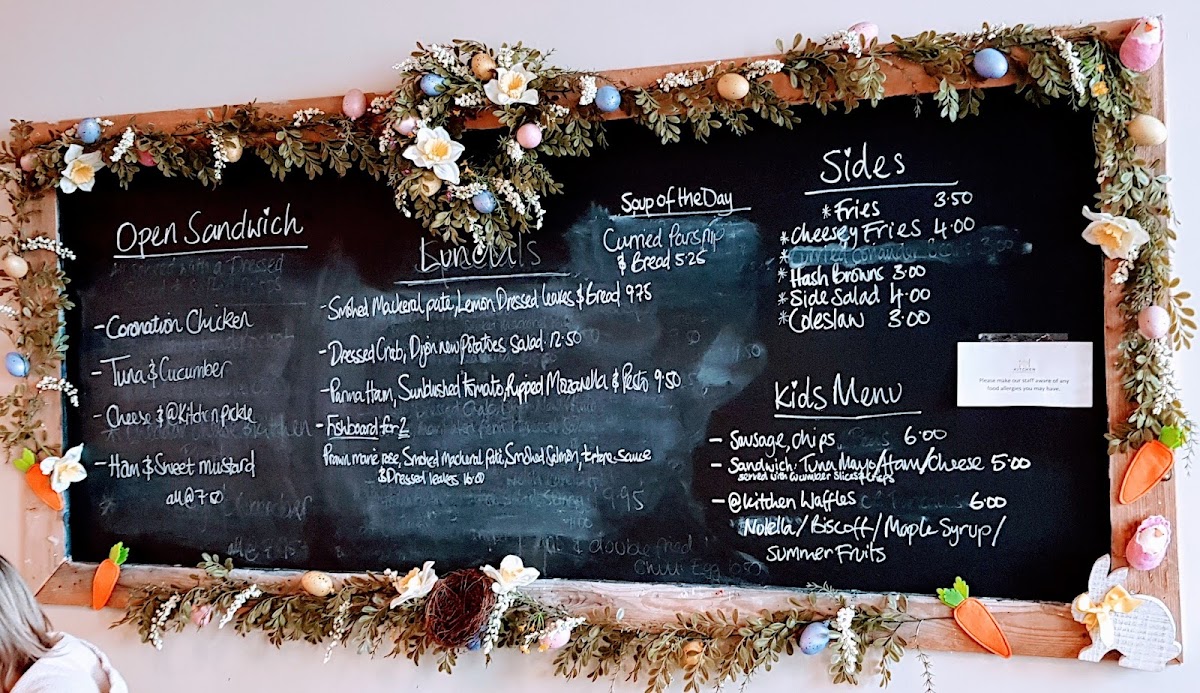 Open Sandwich
- Coronation Chicken
- Tuna & Cucumber
- Cheese & @Kitchn pickle
- Ham & Sweet mustard
all @ 7.50
- Smoked Mackeral paté, Lemon Dressed leaves & Bread 9.75
- Dressed Crab, Dijon new Potatoes salad. 12.50
- Parma Ham, Sunblushed tomato, Ripped Mozzarella & Pesto 9.50
- Fishboard for 2
Prawn marie rose, Smoked mackeral paté, Smoked Salmon, tartare sauce
& Dressed leaves 16.00
Soup of the Day
Curried Parsnip
& Bread 5.25
Sides
*Fries 3.50
*Cheesey Fries 4.00
*Hash Browns 3.00
*Side Salad 4.00
*Coleslaw 3.00
KITCHEN
Please make our staff aware of any
food allergies you may have.
Kids Menu
- Sausage, chips, 6.00
- Sandwich: Tuna Mayo/Ham/Cheese 5.00
served with cucumber slices & crisps
- @kitchen Waffles 6.00
Nutella/Biscoff/Maple Syrup/
Summer Fruits